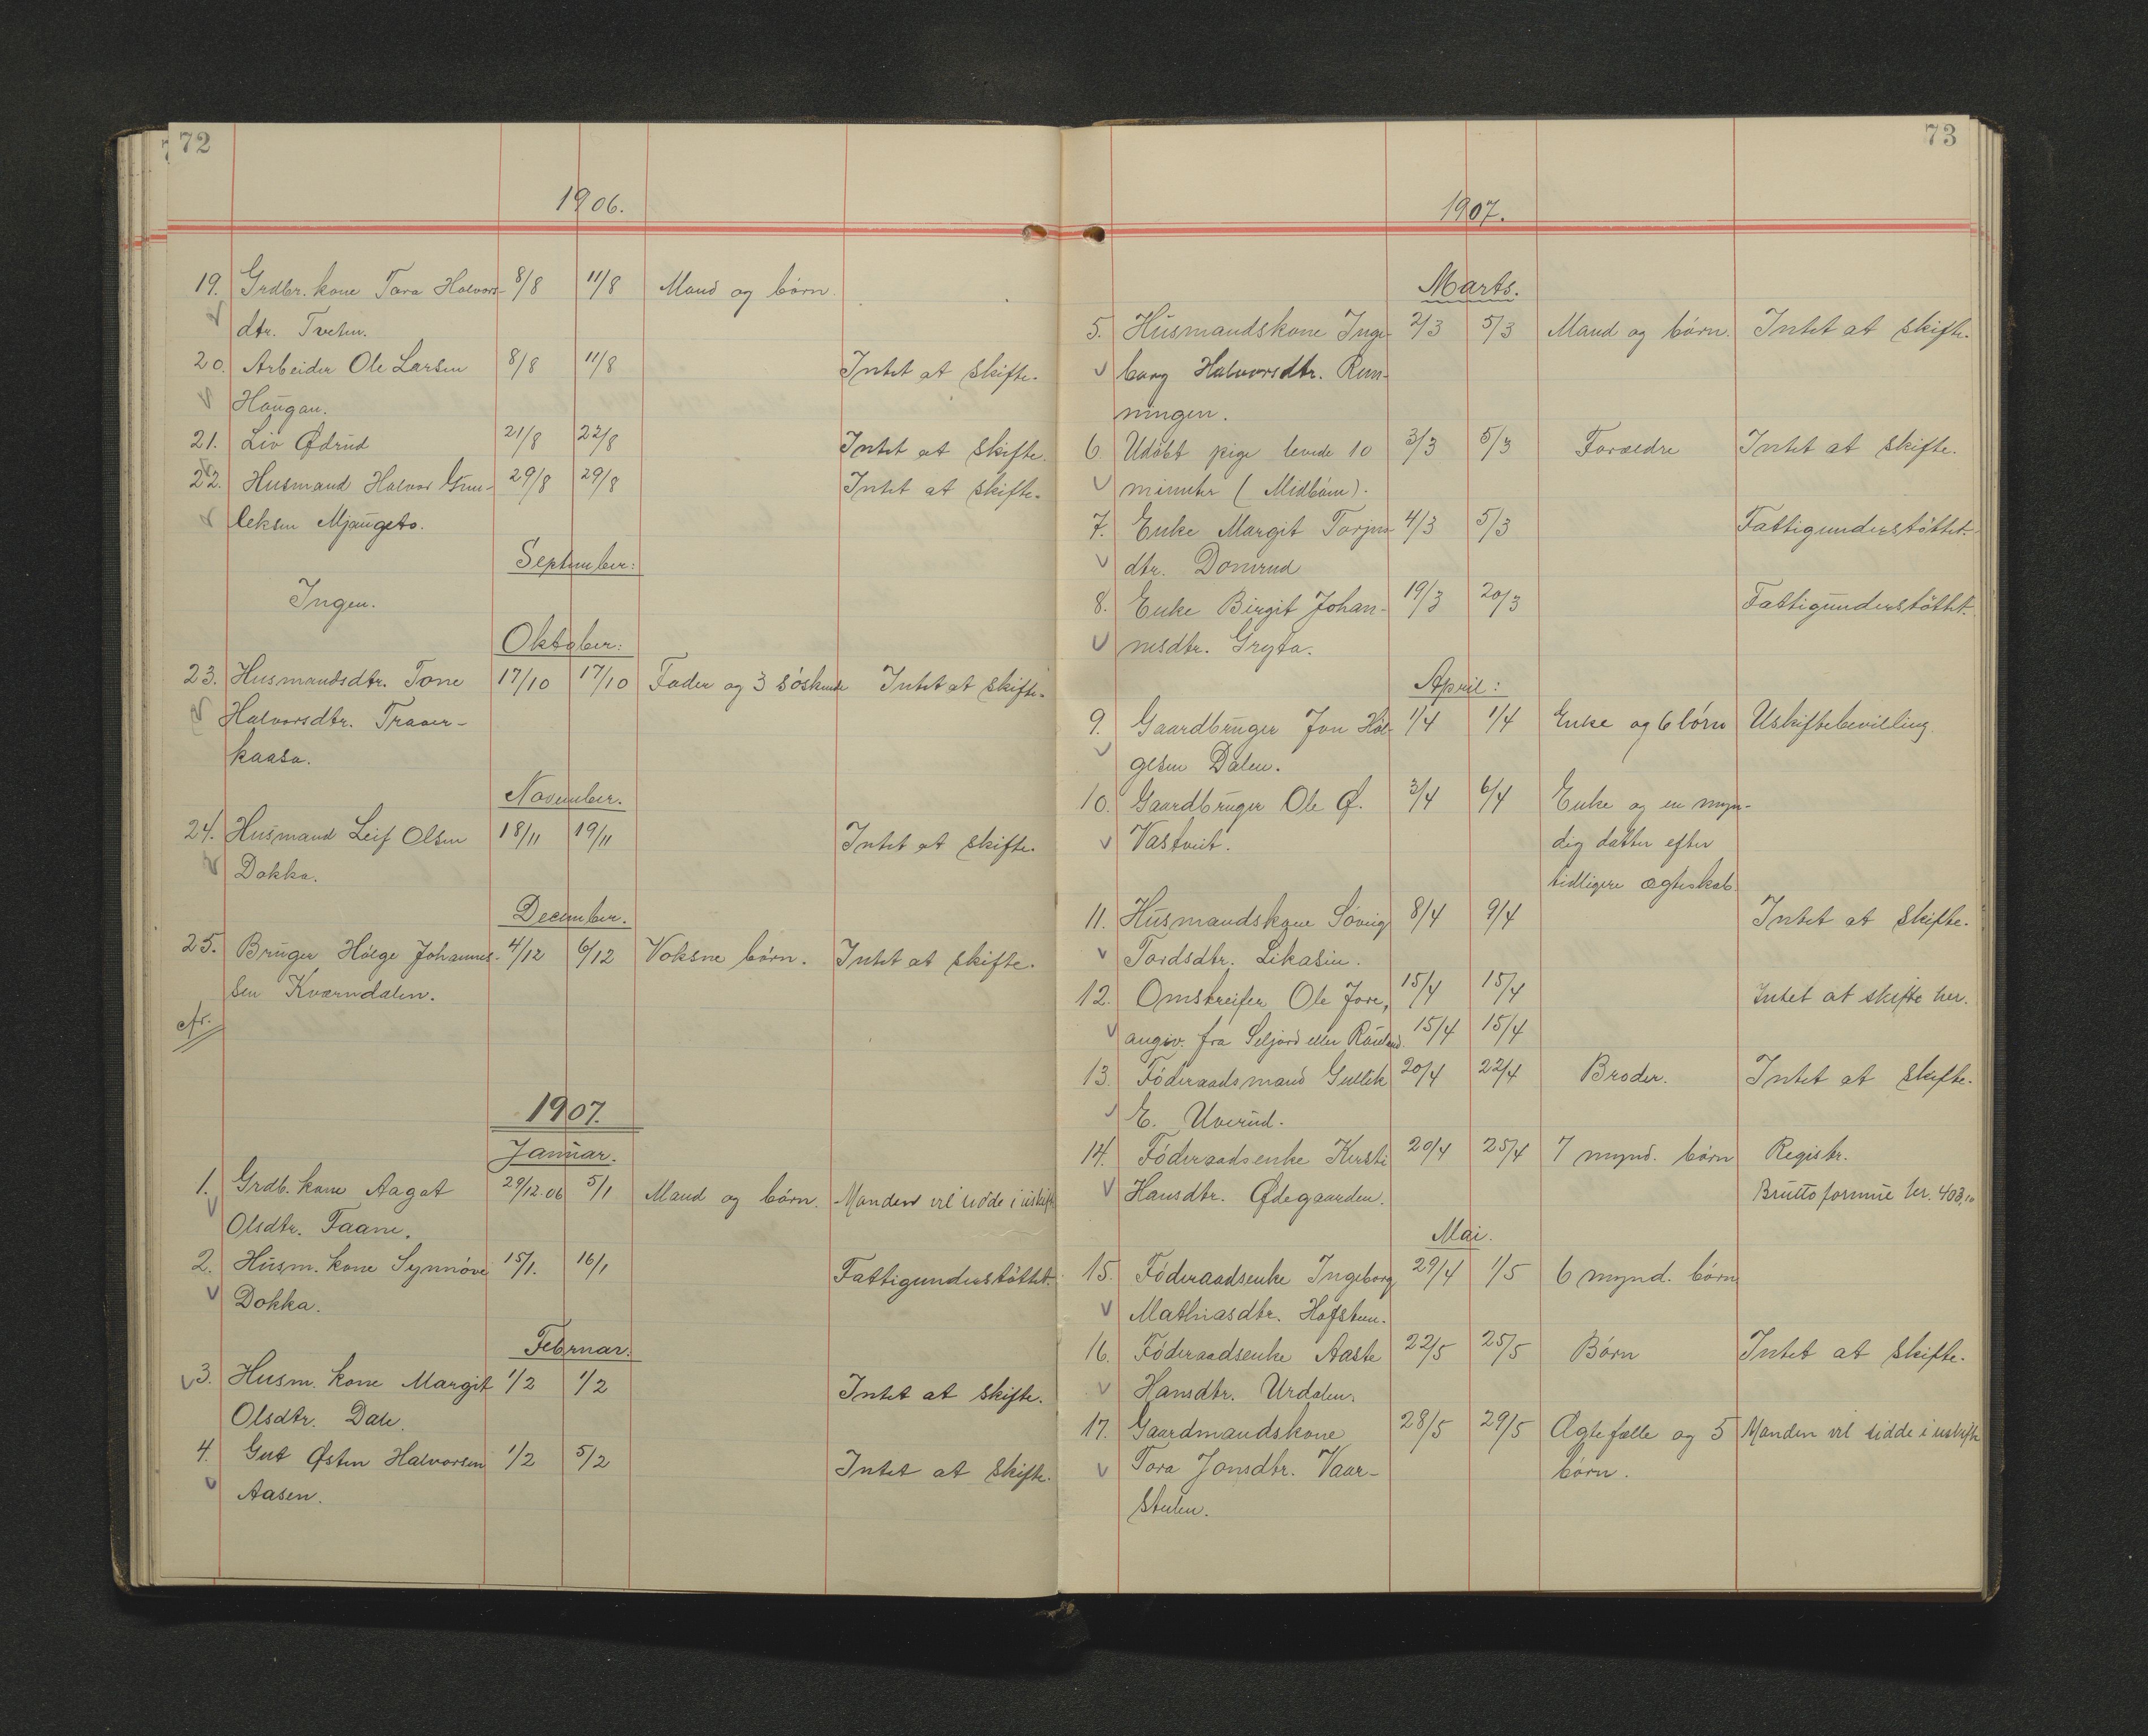 72
1906.
19. Grdbr. kone Tora Halvors- 8/8 11/8 Mand og børn.
dtr. Tveten.
20. Arbeider Ole Larsen 8/8 11/8 Intet at skifte.
Haugan.
21. Liv Ødrud 21/8 22/8 Intet at skifte.
22. Husmand Halvor Gun- 29/8 29/8 Intet at skifte.
leksen Mjaugeto.
September:
Ingen.
Oktober:
23. Husmandsdtr. Tone 17/10 17/10 Fader og 3 søskende Intet at skifte.
Halvorsdtr. Traaer-
kaasa.
November.
24. Husmand Leif Olsen 18/11 19/11 Intet at skifte.
Dokka.
December.
25. Bruger Hølge Johannes- 4/12 6/12 Voksne børn. Intet at skifte.
sen Kværndalen.
1907.
Januar.
1. Grdb. kone Aagot 29/12.06 5/1 Mand og børn. Manden vil sidde i uskifte
Olsdtr. Faane.
2. Husm. kone Synnøve 15/1. 16/1 Fattigunderstøttet.
Dokka.
Februar.
3. Husm. kone Margit 1/2 1/2 Intet at skifte.
Olsdtr. Dale.
4. Gut Østen Halvorsen 1/2 5/2 Intet at skifte.
Aasen.
73
1907.
Marts.
5. Husmandskone Inge- 2/3 5/3 Mand og børn. Intet at skifte.
borg Halvorsdtr. Run-
ningen.
6. Udøbt pige levede 10 3/3 5/3 Forældre Intet at skifte.
minuter (Midbøen).
7. Enke Margit Torjus- 4/3 5/3 Fattigunderstøttet.
dtr. Domrud
8. Enke Birgit Johan- 19/3 20/3 Fattigunderstøttet.
nesdtr. Gryta.
April:
9. Gaardbruger Jon Høl- 1/4 1/4 Enke og 6 børn Uskiftebevilling.
gesen Dalen.
10. Gaardbruger Ole Ø. 3/4 6/4 Enke og en myn-
Vastveit. dig datter efter
tidligere ægteskab
11. Husmandskone Søveig 8/4 9/4 Intet at skifte.
Tordsdtr. Likasin.
12. Omstreifer Ole Jore, 15/4 15/4 Intet at skifte her.
angiv. fra Seljord eller Rauland. 15/4 15/4
13. Føderaadsmand Gullek 20/4 22/4 Broder. Intet at skifte.
E. Uverud.
14. Føderaadsenke Kirsti 20/4 25/4 7 mynd. børn Registr.
Hansdtr. Ødegaarden. Brutto formue kr. 403,10
Mai.
15. Føderaadsenke Ingeborg 29/4 1/5 6 mynd. børn
Mathiasdtr. Hofstun.
16. Føderaadsenke Aaste 22/5 25/5 Børn Intet at skifte.
Hansdtr. Urdalen.
17. Gaardmandskone 28/5 29/5 Ægtefælle og 5 Manden vil sidde i uskifte
Tora Jonsdtr. Vaar- børn.
stulen.